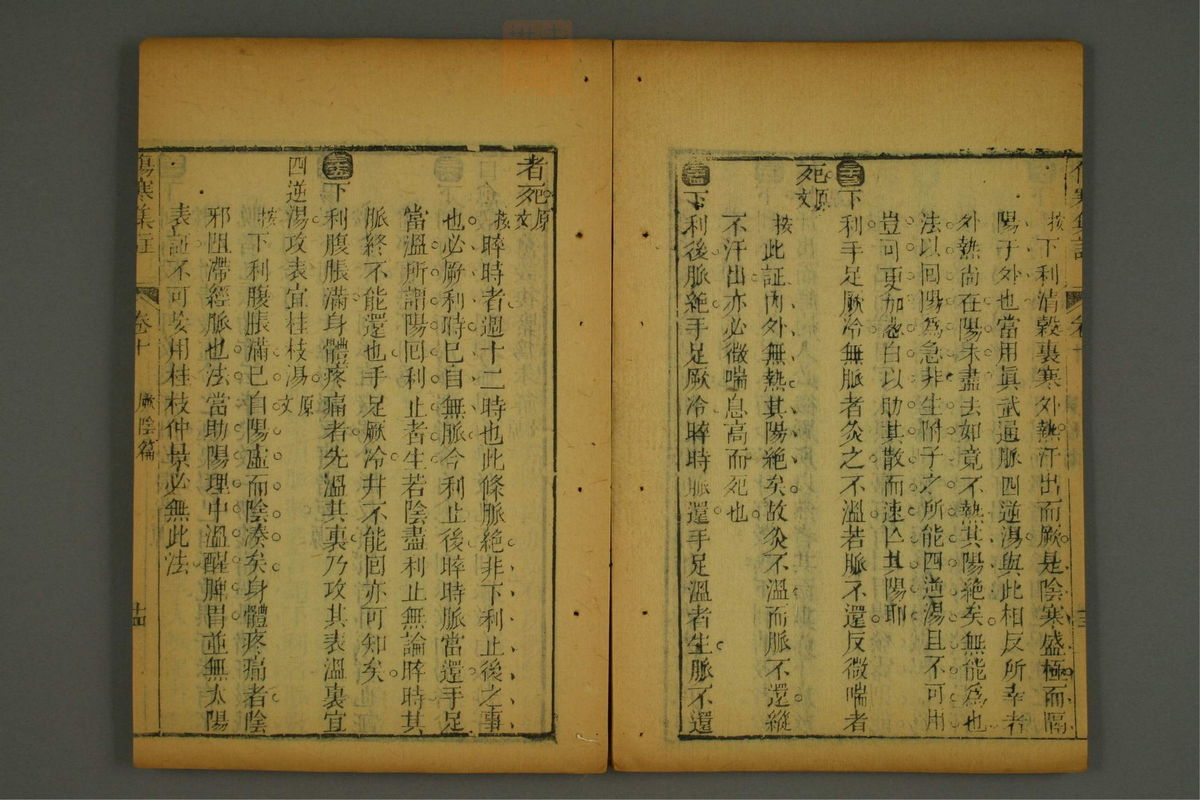 按下利清穀裏寒外熱汗出而厥是陰寒盛極而隔
陽于外也當用眞武通脈四逆湯與此相反所幸者
外熱尚在陽未盡去如竟不熱其陽絶矣無能爲也
法以回陽爲急非生附子之所能四逆湯且不可用
豈可更加葱白以助其散而速亾其陽耶
下利手足厥冷無脈者灸之不溫若脈不還反微喘者
死原文
按此証內外無熱其陽絶矣故灸不溫而脈不還縱
不汗出亦必微喘息高而死也
下利後脈絶手足厥冷晬時脈還手足溫者生脈不還
者死原文
按晬時者週十二時也此條脈絶非下利止後之事
也必厥利時已自無脈今利止後晬時脈當還手足
當溫所謂陽回利止者生若陰盡利止無論晬時其
脈終不能還也手足厥冷并不能回亦可知矣
下利腹脹滿身體疼痛者先溫其裏乃攻其表溫裏宜
四逆湯攻表宜桂枝湯原文
按下利腹脹滿已自陽虛而陰湊矣身體疼痛者陰
邪阻滯經脈也法當助陽理中溫醒脾胃並無太陽
表証不可妄用桂枝仲景必無此法
傷寒集註 卷十 厥陰篇 十四